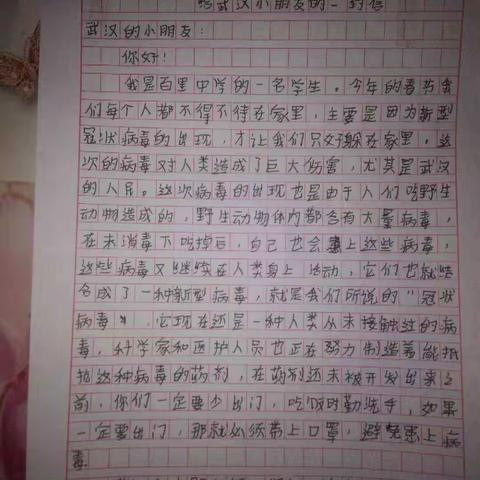 给武汉小朋友的一封信
武汉的小朋友：
你好！
我是百里中学的一名学生。今年的春节我
们每个人都不得不待在家里，主要是因为新型
冠状病毒的出现，才让我们只好躲在家里。这
次的病毒对人类造成了巨大伤害，尤其是武汉
的人民。这次病毒的出现也是由于人们吃野生
动物造成的，野生动物体内都含有大量病毒，
在未消毒下吃掉后，自己也会患上这些病毒，
这些病毒又继续在人类身上活动，它们也就结
合成了一种新型病毒，就是我们所说的“冠状
病毒”。它现在还是一种人类从未接触过的病
毒，科学家和医护人员也正在努力制造着能抵
抗这种病毒的药剂，在药剂还未被开发出来之
前，你们一定要少出门，吃饭时勤洗手，如果
一定要出门，那就必须带上口罩，避免患上病
毒